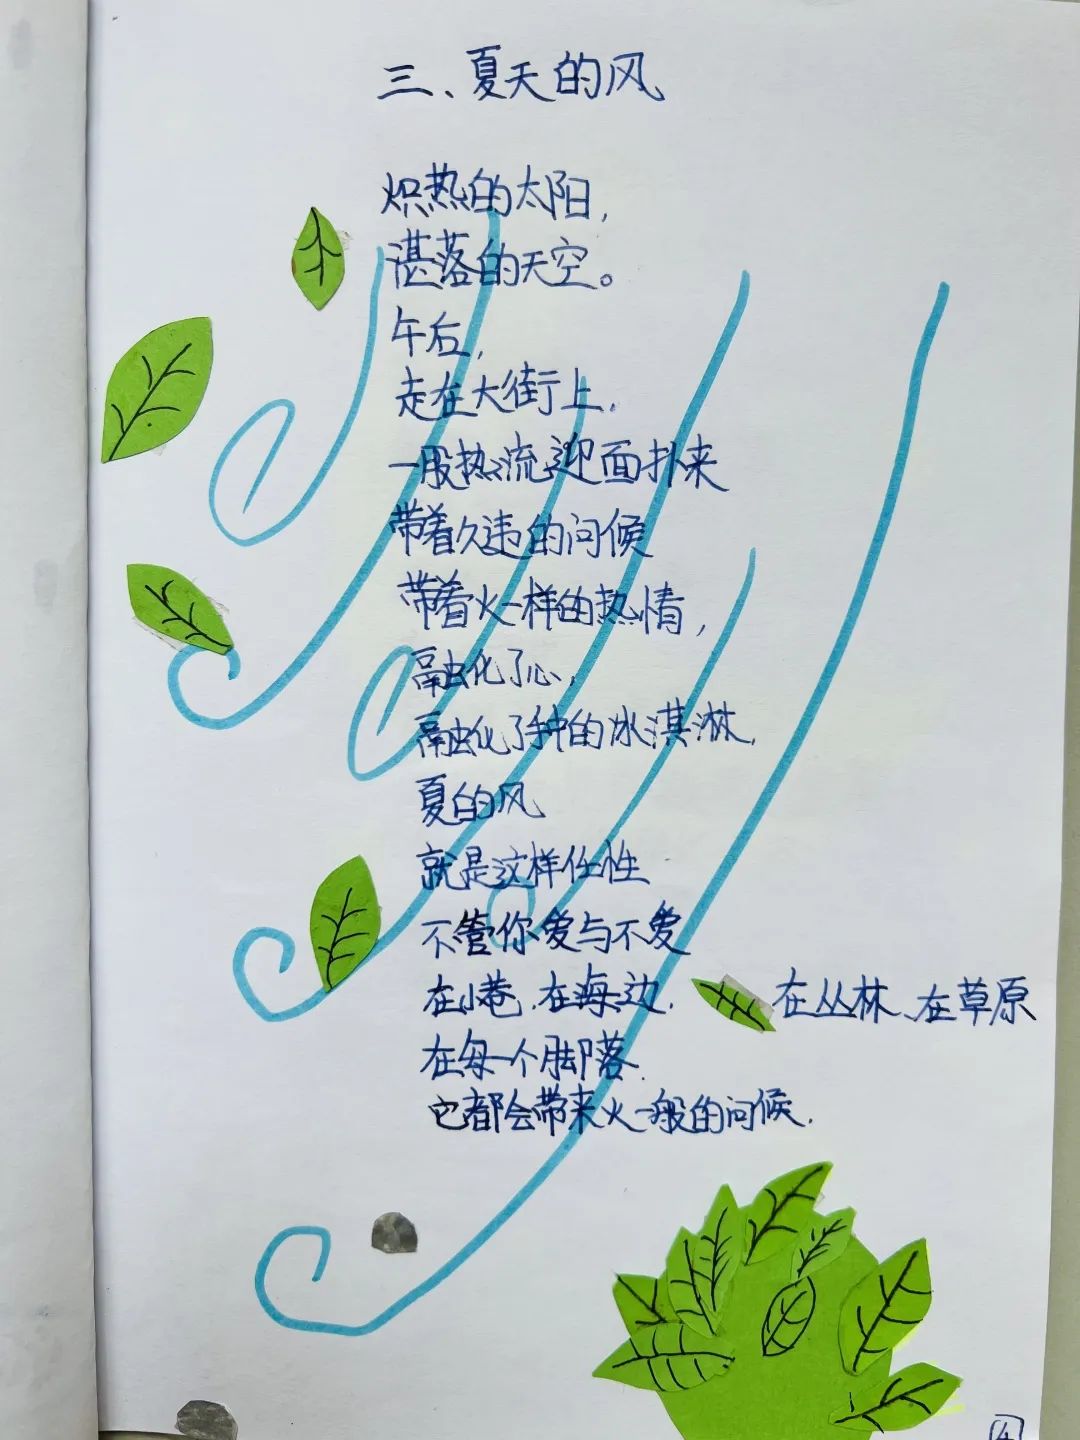 三、夏天的风
炽热的太阳,
湛落的天空。
午后,
走在大街上,
一股热流迎面扑来
带着久违的问候
带着火一样的热情,
融化了心,
融化了手中的冰淇淋,
夏的风
就是这样任性
不管你爱与不爱
在小巷、在海边、在丛林、在草原
在每一个脚落,
它都会带来火一般的问候.
4